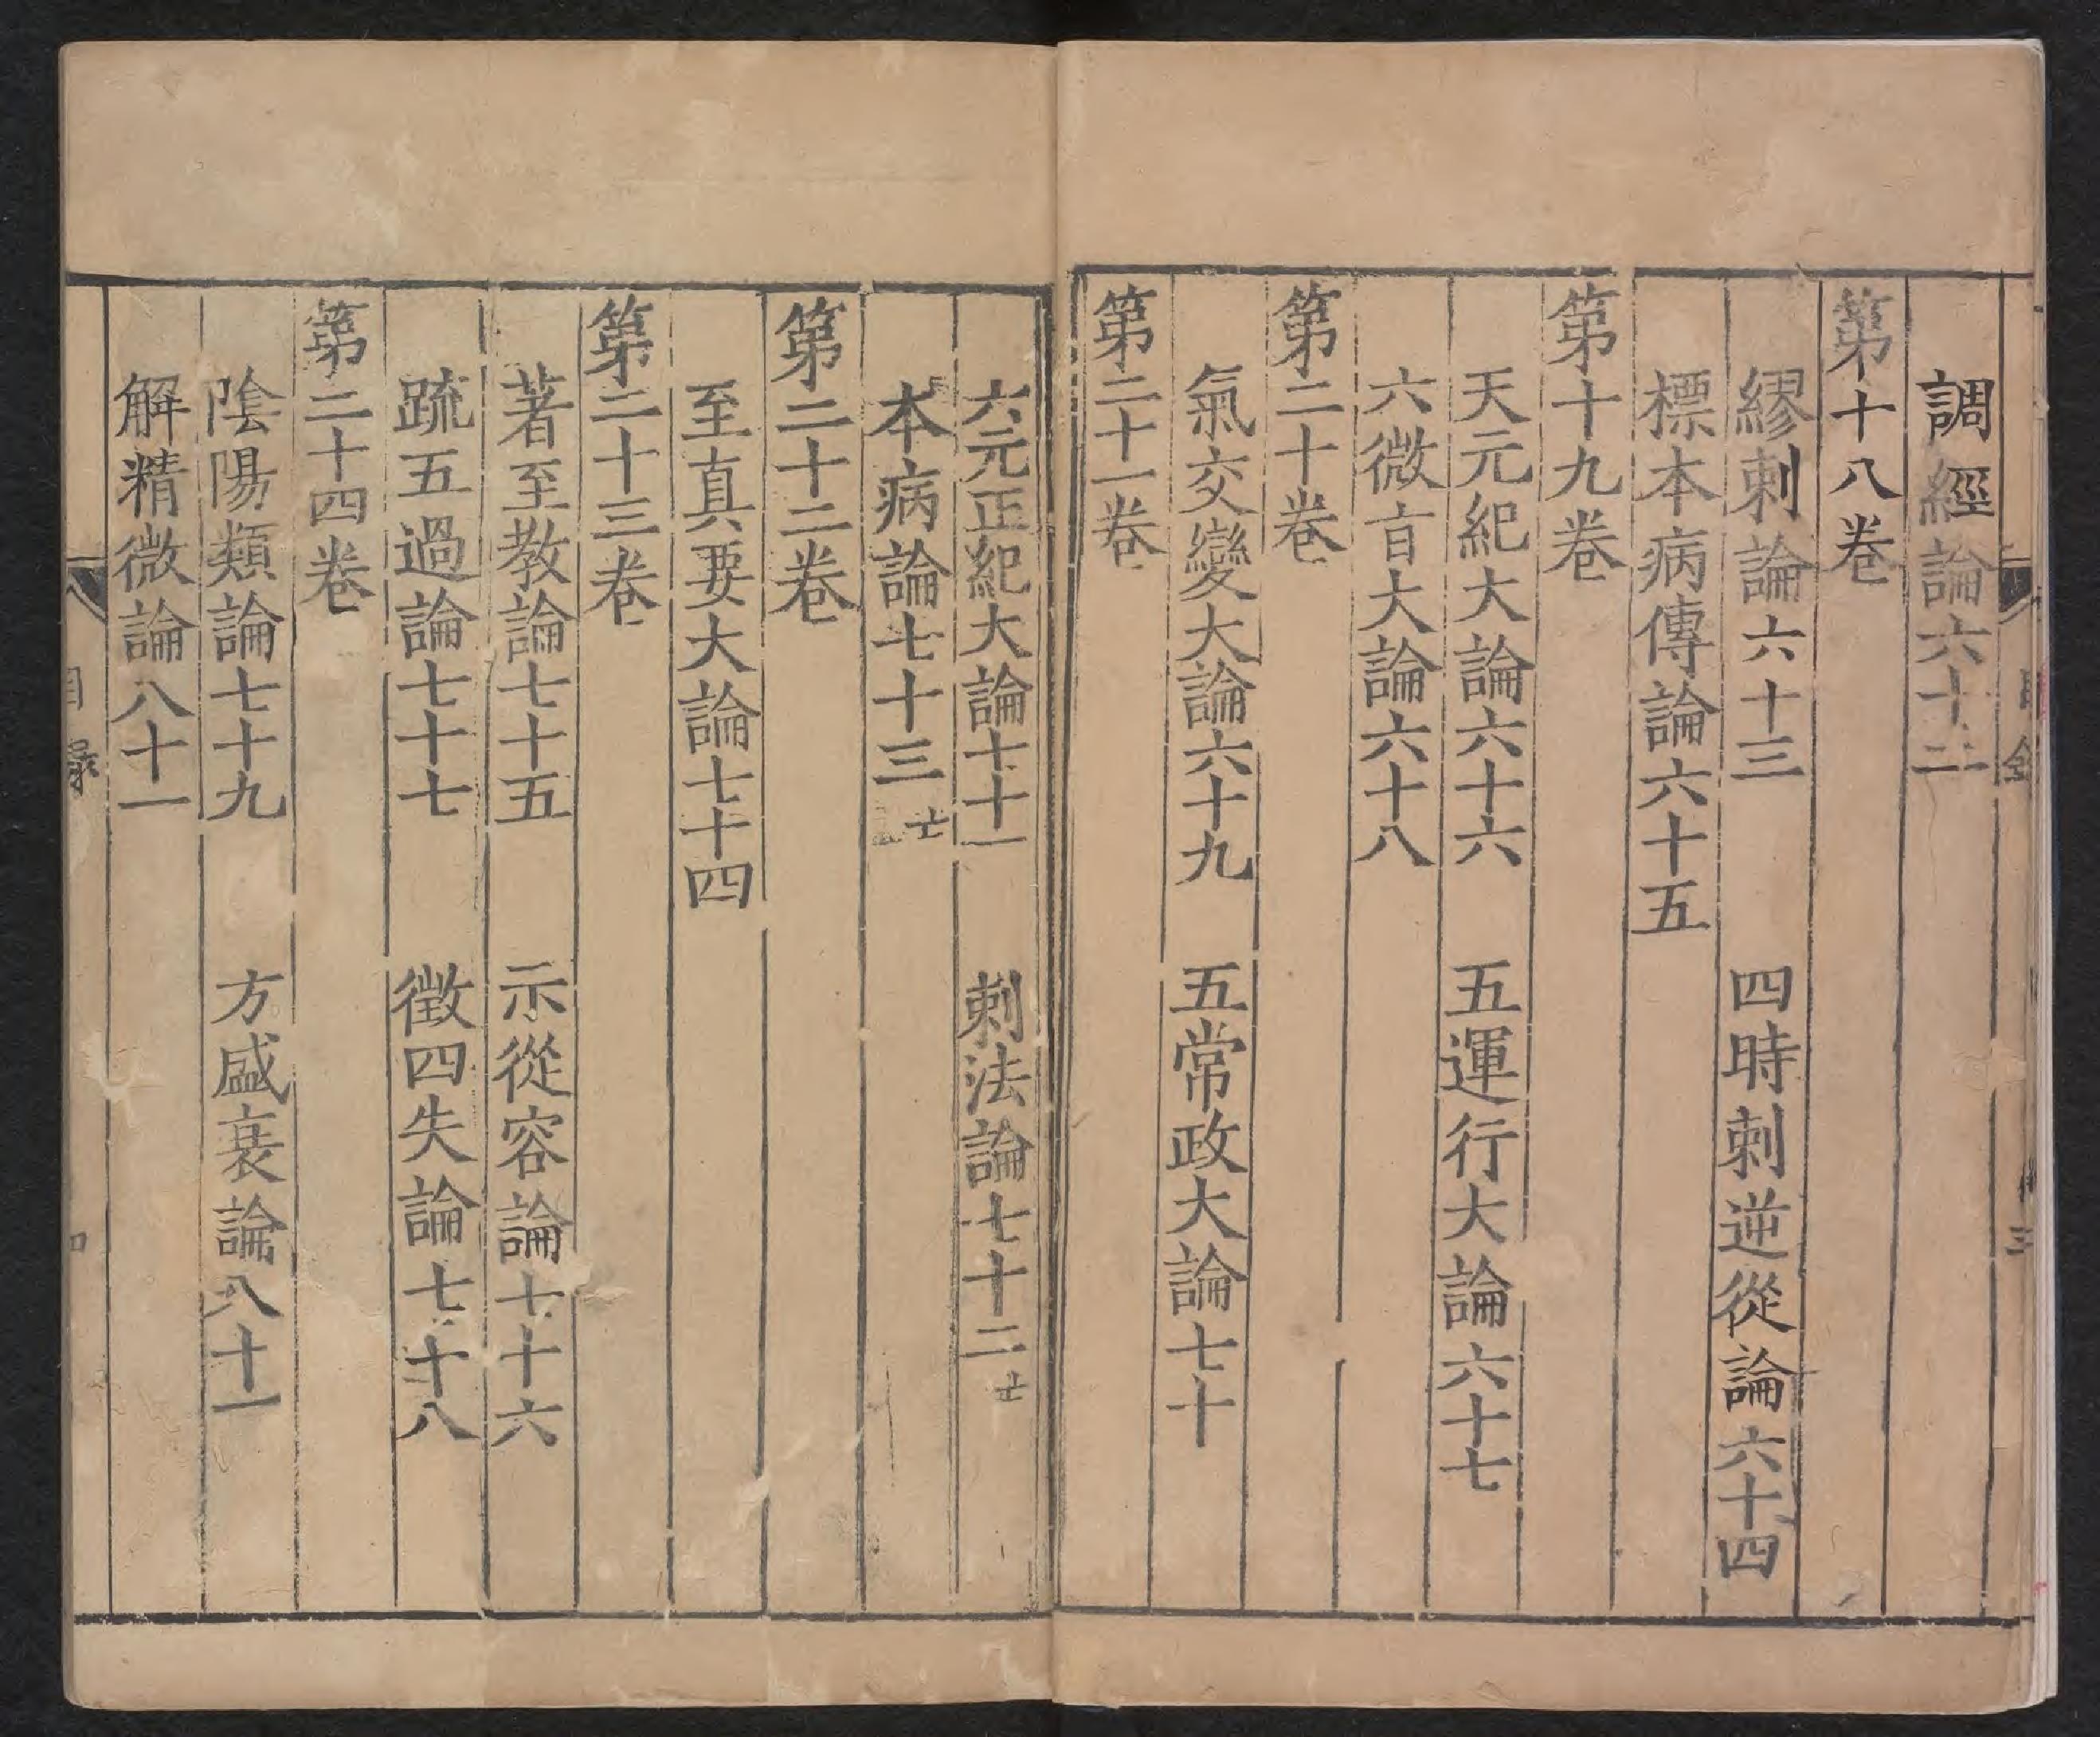 調經論六十二
第十八卷
繆刺論六十三 四時刺逆從論六十四
標本病傳論六十五
第十九卷
天元紀大論六十六 五運行大論六十七
六微旨大論六十八
第二十卷
氣交變大論六十九 五常政大論七十
第二十一卷
六元正紀大論七十一 刺法論七十二亡
本病論七十三亡
第二十二卷
至真要大論七十四
第二十三卷
著至教論七十五 示從容論七十六
疏五過論七十七 徵四失論七十八
第二十四卷
陰陽類論七十九 方盛衰論八十一
解精微論八十一
目錄